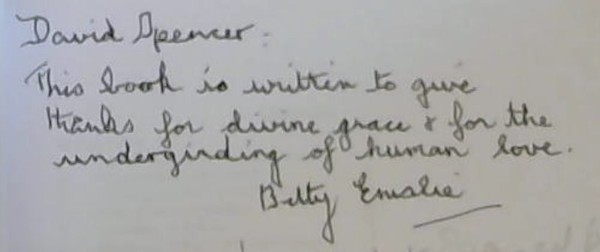 David Spencer:
This book is written to give
thanks for divine grace & for the
undergirding of human love.
Betty Emslie